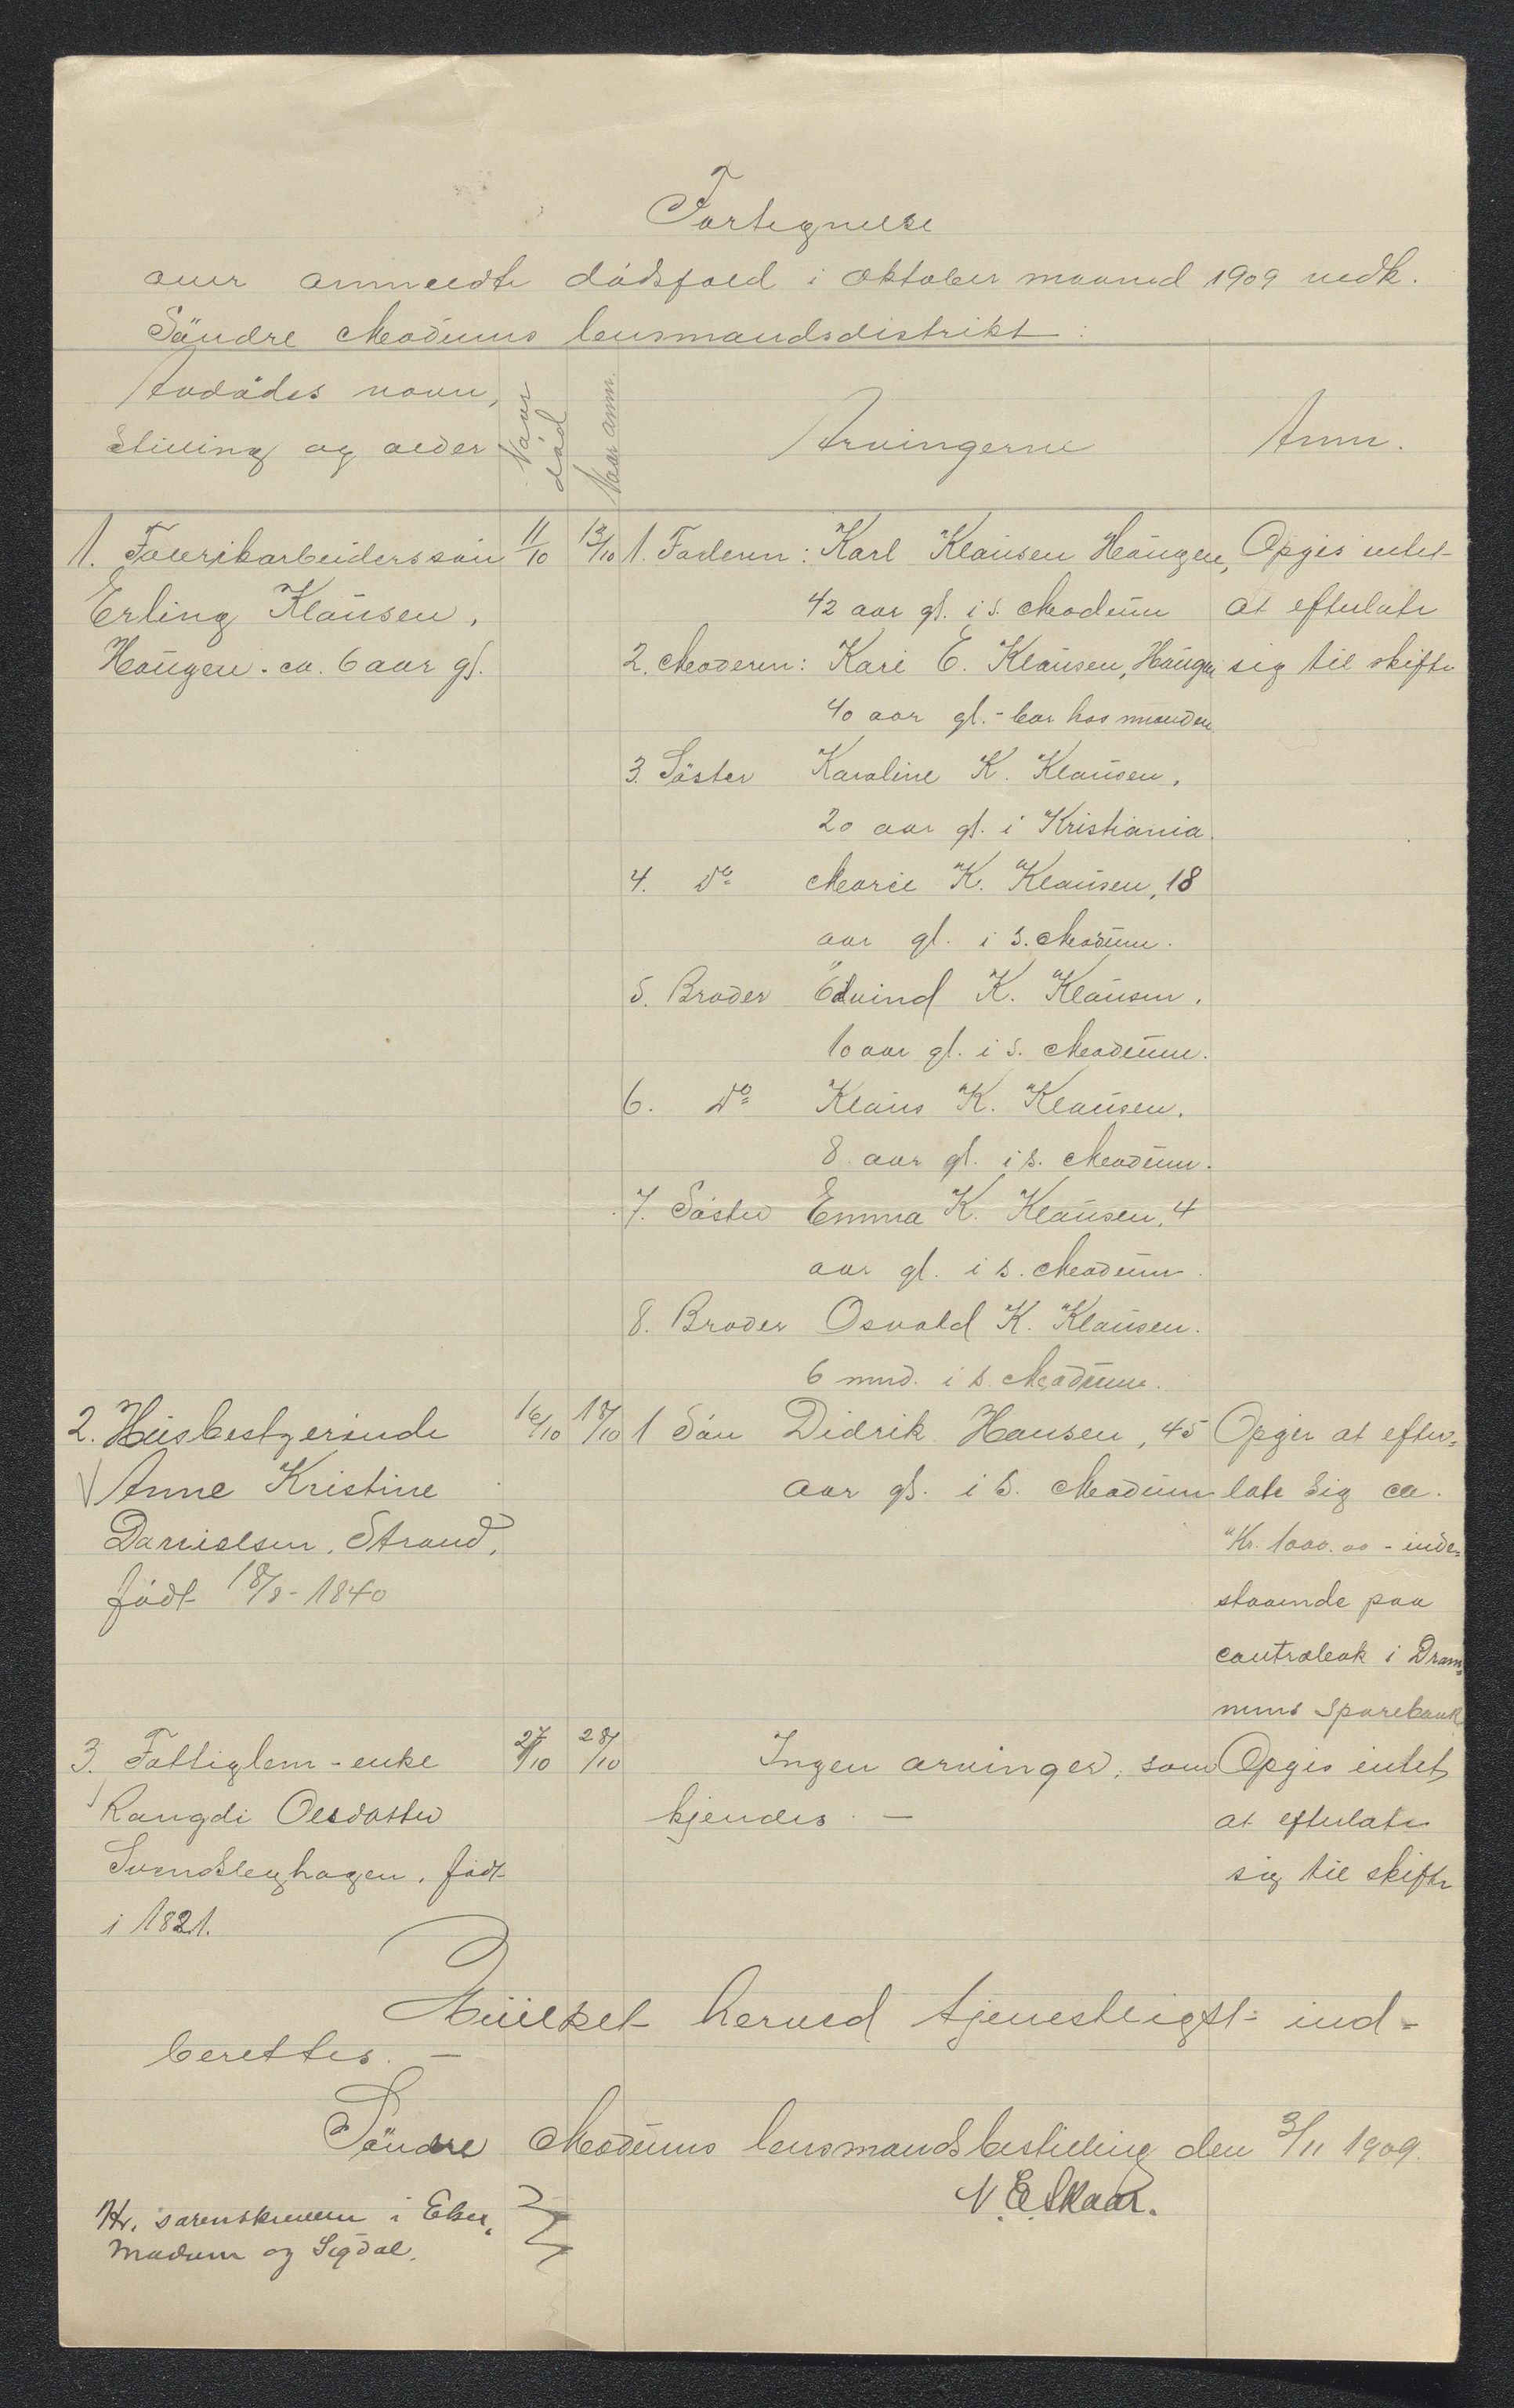 Fortegnelse
over anmeldte dödsfald i oktober maaned 1909 vedk.
Söndre Modums lensmandsdistrikt:
Avdödes navn,
stilling og alder
Naar död
Naar anm.
Arvingerne
Anm.
1. Fabrikarbeiderssön 11/10 13/10 1. Faderen: Karl Klausen Haugen, Opgis intet
Erling Klausen, 42 aar gl. i S. Modum at efterlate
Haugen. ca. 6 aar gl. 2. Moderen: Kari E. Klausen, Haugen sig til skifte
40 aar gl. - bor hos manden.
3. Söster Karoline K. Klausen,
20 aar gl. i Kristiania.
4. Do Marie K. Klausen, 18
aar gl. i S. Modum.
5. Broder Edvind K. Klausen.
10 aar gl. i S. Modum.
6. Do Klaus K. Klausen.
8 aar gl. i S. Modum.
7. Söster Emma K. Klausen, 4
aar gl. i S. Modum.
8. Broder Osvald K. Klausen.
6 mnd. i S. Modum.
2. Husbestyrerinde 16/10 18/10 1 Sön Didrik Hansen, 45 Opgir at efter-
Anne Kristine aar gl. i S. Modum late sig ca.
Danielsen, Strand, Kr. 1000.00 - inde-
födt 18/8 - 1840 staaende paa
contrabok i Dram-
mens Sparebank
3. Fattiglem - enke 27/10 28/10 Ingen arvinger, som Opgis intet
Rangdi Olsdatter kjendes. — at efterlate
Svendsbyhagen, födt sig til skifte
i 1821.
Hvilket herved tjenestligst ind-
berettes. —
Söndre Modums lensmandsbestilling den 3/11 1909.
N. E. Skaar.
Hr. sorenskriveren i Eker,
Modum og Sigdal.